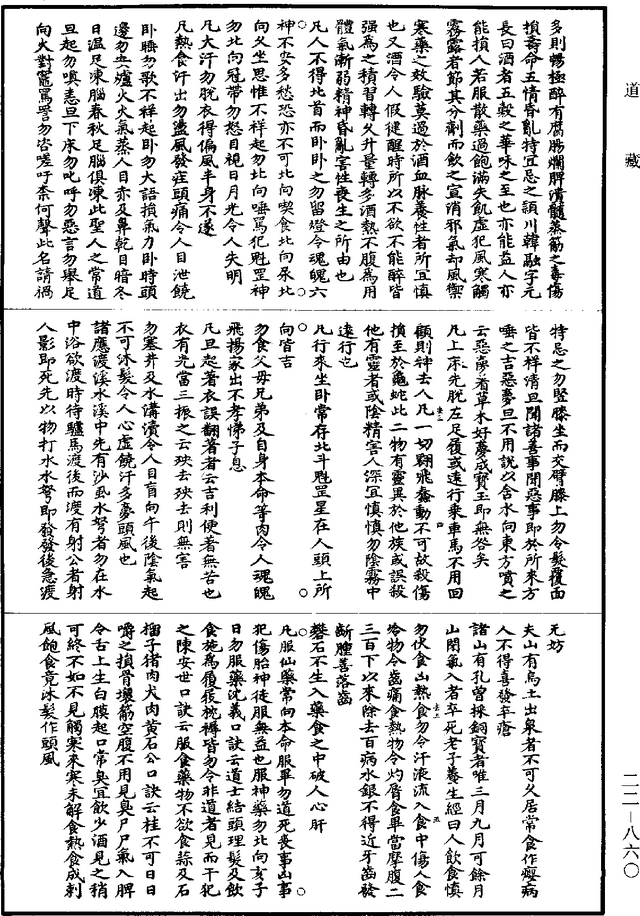 道藏
多則暢極醉有腐腸爛脾潰髓蒸筋之毒傷
損壽命五情昏亂特宜忌之潁川韓融字元
長曰酒者五穀之華味之至也亦能益人亦
能損人若服散藥過飽滿失飢虛犯風寒觸
霧露者節其分劑而飲之宣消邪氣却風禦
寒藥之效驗莫過於酒血脉養性者所宜慎
也又酒令人假徤醒時所以不欲不能醉皆
强為之積習轉久升量轉多酒熱不腹為用
體氣漸弱精神昏亂害性喪生之所由也
凡人不得北首而卧卧之勿留燈令魂魄六
神不安多愁恐亦不可北向喫食北向尿北
向久坐思惟不祥起勿北向唾罵犯魁罡神
勿北向冠帶勿怒目視日月光令人失明
凡大汗勿脫衣得偏風半身不遂
凡熱食汗出勿盪風發痓頭痛令人目泄饒
卧睡勿歌不祥起卧勿大語損氣力卧時頭
邊勿安爐火火氣蒸人目赤及鼻乾日暗冬
日温足凍腦春秋足腦俱凍此聖人之常道
旦起勿嗔恚旦下床勿叱呼勿惡言勿舉足
向火對竈罵詈勿咨嗟吁奈何聲此名請禍
特忌之勿竪膝坐而交臂膝上勿令髮覆面
皆不祥清旦聞諸善事聞惡事即於所來方
唾之吉惡夢旦不用說以含水向東方噴之
云惡夢着草木好夢成寶玉即無咎矣
凡上床先脫左足履或遠行乘車馬不用回
顧則神去人凡一切翾飛蠢動不可故殺傷
損至於龜蛇此二物有靈異於他族或誤殺
他有靈者或陰精害人深宜慎慎勿陰霧中
遠行也
凡行來坐卧常存北斗魁罡星在人頭上所
向皆吉
勿食父母兄弟及自身本命等肉令人魂魄
飛揚家出不孝悌子息
凡旦起著衣誤翻著者云吉利便著無苦也
衣有光當三振之云殃去殃去則無害
勿塞井及水溝瀆令人目盲向午後陰氣起
不可沐髮令人心虛饒汗多夢頭風也
諸應渡溪水溪中先有沙虱水弩者勿在水
中浴欲渡時待驢馬渡後而渡有射公者射
人影即死先以物打水水弩即發發後急渡
无妨
夫山有烏土出泉者不可久居常食作癭病
人不得喜發牢瘧
諸山有孔曾採銅寶者唯三月九月可餘月
山閉氣入者卒死老子養生經曰人飲食慎
勿伏食山熱食勿令汗液流入食中傷人食
冷物令齒痛食熱物令灼脣食畢當摩腹二
三百下以來除去百病水銀不得近牙齒發
斷腫善落齒
礬石不生入藥食之中破人心肝
凡服仙藥常向本命服畢勿道死喪事山事
犯傷胎神徒服無益也服神藥勿北向亥子
日勿服藥沈羲口訣云道士結頭理髮及飲
食施為履屐枕褥皆勿令非道者見而干犯
之陳安世口訣云服食藥物不欲食蒜及石
榴子猪肉犬肉黄石公口訣云桂不可日日
嚼之損骨壞筋空腹不用見臭尸尸氣入脾
令舌上生白膜起口常臭宜飲少酒見之稍
可終不如不見觸寒來寒未解食熱食成刺
風飽食竟沐髮作頭風
二二—八六〇